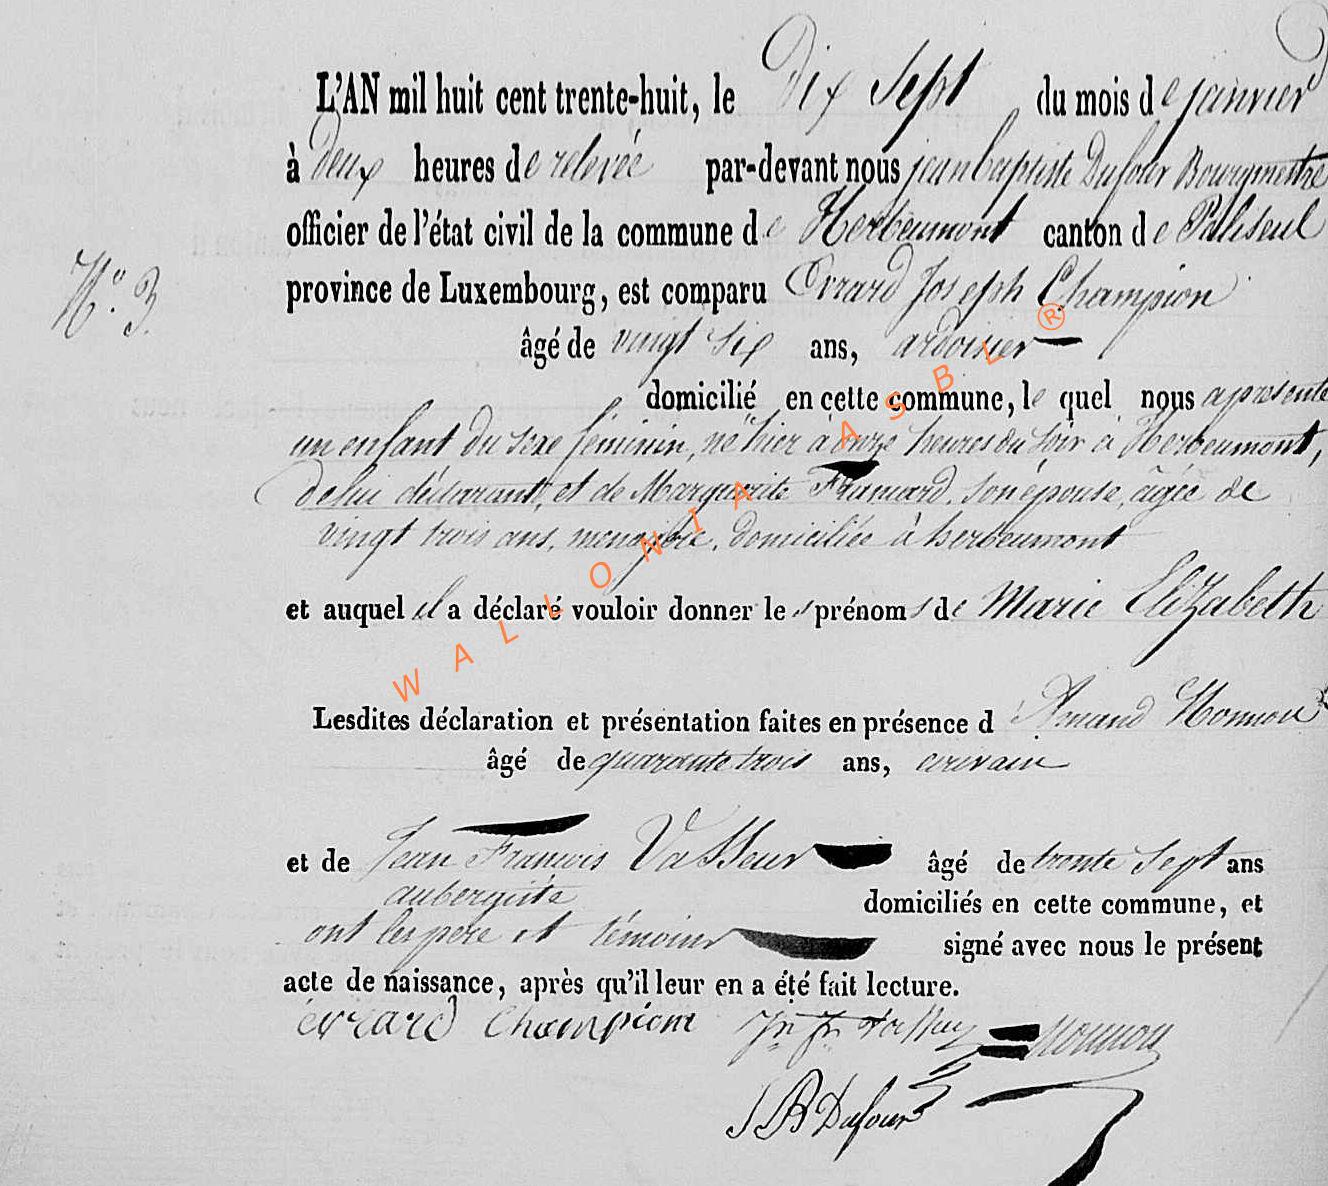 L'AN mil huit cent trente-huit, le Dix Sept du mois de janvier
à deux heures de relevée par-devant nous jean baptiste Dufour Bourgmestre
officier de l'état civil de la commune de Herbeumont canton de Paliseul
N.º 3.
province de Luxembourg, est comparu Evrard Joseph Champion
âgé de vingt six ans, ardoisier
domicilié en cette commune, le quel nous a présenté
un enfant du sexe féminin, né hier à onze heures du soir à Herbeumont,
de lui déclarant, et de Marguerite Framard, son épouse, âgée de
vingt trois ans, menagère, domiciliée à herbeumont
et auquel il a déclaré vouloir donner les prénoms de Marie Elizabeth
Lesdites déclaration et présentation faites en présence d Amand Monnou
âgé de quarante trois ans, ecrivain
et de Jean François Vasseur âgé de trente Sept ans
aubergiste domiciliés en cette commune, et
ont les père et témoins signé avec nous le présent
acte de naissance, après qu'il leur en a été fait lecture.
évrard Champion Jn Fr Vasseur Monnou
J B Dufour
WALLONIA ASBL ®